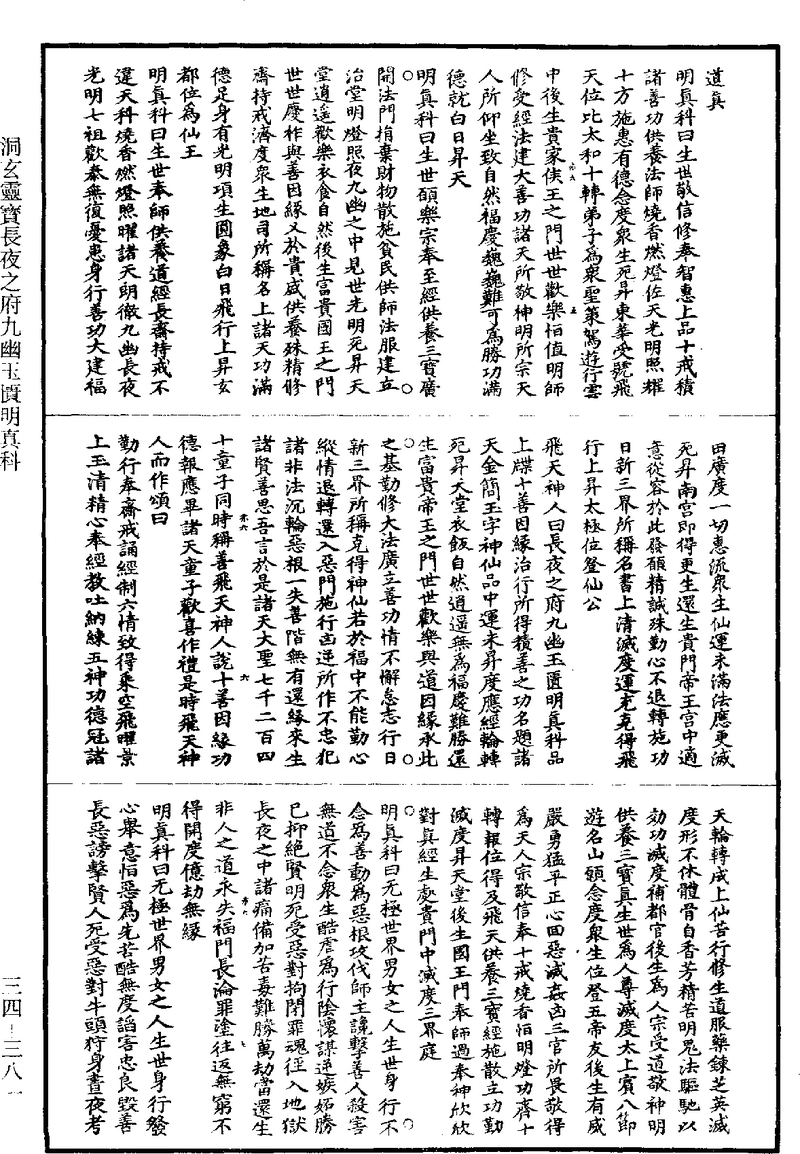 道真
明真科曰生世敬信修奉智惠上品十戒積
諸善功供養法師燒香燃燈佐天光明照耀
十方施惠有德念度衆生死昇東華受號飛
天位比太和十轉弟子為衆聖策駕遊行雲
中後生貴家侯王之門世世歡樂恒值明師
修受經法建大善功諸天所敬神明所宗天
人所仰坐致自然福慶巍巍難可為勝功滿
德就白日昇天
明真科曰生世願樂宗奉至經供養三寶廣
開法門捐棄財物散施貧民供師法服建立
治堂明燈照夜九幽之中見世光明死昇天
堂逍遥歡樂衣食自然後生富貴國王之門
世世慶祚與善因緣又於貴盛供養殊精修
齋持戒濟度衆生地司所稱名上諸天功滿
德足身有光明項生圓象白日飛行上昇玄
都位為仙王
明真科曰生世奉師供養道經長齋持戒不
違天科燒香燃燈照曜諸天朗徹九幽長夜
光明七祖歡泰無復憂患身行善功大建福
田廣度一切惠流衆生仙運未滿法應更滅
死昇南宫即得更生還生貴門帝王宫中適
意從容於此發願精誠殊勤心不退轉施功
日新三界所稱名書上清滅度運充克得飛
行上昇太極位登仙公
飛天神人曰長夜之府九幽玉匱明真科品
上牒十善因緣治行所得積善之功名題諸
天金簡玉字神仙品中運未昇度應經輪轉
死昇天堂衣飯自然逍遥無為福慶難勝還
生富貴帝王之門世世歡樂與道因緣承此
之基勤修大法廣立善功情不懈怠志行日
新三界所稱克得神仙若於福中不能勤心
縱情退轉還入惡門施行凶逆所作不忠犯
諸非法沉輪惡根一失善階無有還緣來生
諸賢善思吾言於是諸天大聖七千二百四
十童子同時稱善飛天神人說十善因緣功
德報應畢諸天童子歡喜作禮是時飛天神
人而作頌曰
勤行奉齋戒誦經制六情致得乘空飛曜景
上玉清精心奉經教吐納練五神功德冠諸
天輪轉成上仙苦行修生道服藥鍊芝英滅
度形不休體骨自香芳精苦明鬼法驅馳以
効功滅度補都官後生為人宗受道敬神明
供養三寶真生世為人尊滅度太上賓八節
遊名山願念度衆生位登五帝友後生有威
嚴勇猛平正心回惡滅姦凶三官所畏敬得
為天人宗敬信奉十戒燒香恒明燈功齊十
轉報位得及飛天供養三寶經施散立功勤
滅度昇天堂後生國王門奉師過奉神欣欣
對真經生處貴門中滅度三界庭
明真科曰无極世界男女之人生世身行不
念為善動為惡根攻伐師主讒擊善人殺害
無道不念衆生酷虐為行陰懷謀逆嫉妬勝
已抑絕賢明死受惡對拘閉罪魂徑入地獄
長夜之中諸痛備加苦毒難勝萬劫當還生
非人之道永失福門長淪罪塗往返無窮不
得開度億劫無緣
明真科曰无極世界男女之人生世身行發
心舉意恒惡為先苦酷無度謟害忠良毀善
長惡謗擊賢人死受惡對牛頭狩身晝夜考
洞玄靈寶長夜之府九幽玉匱明真科
三四-三八一